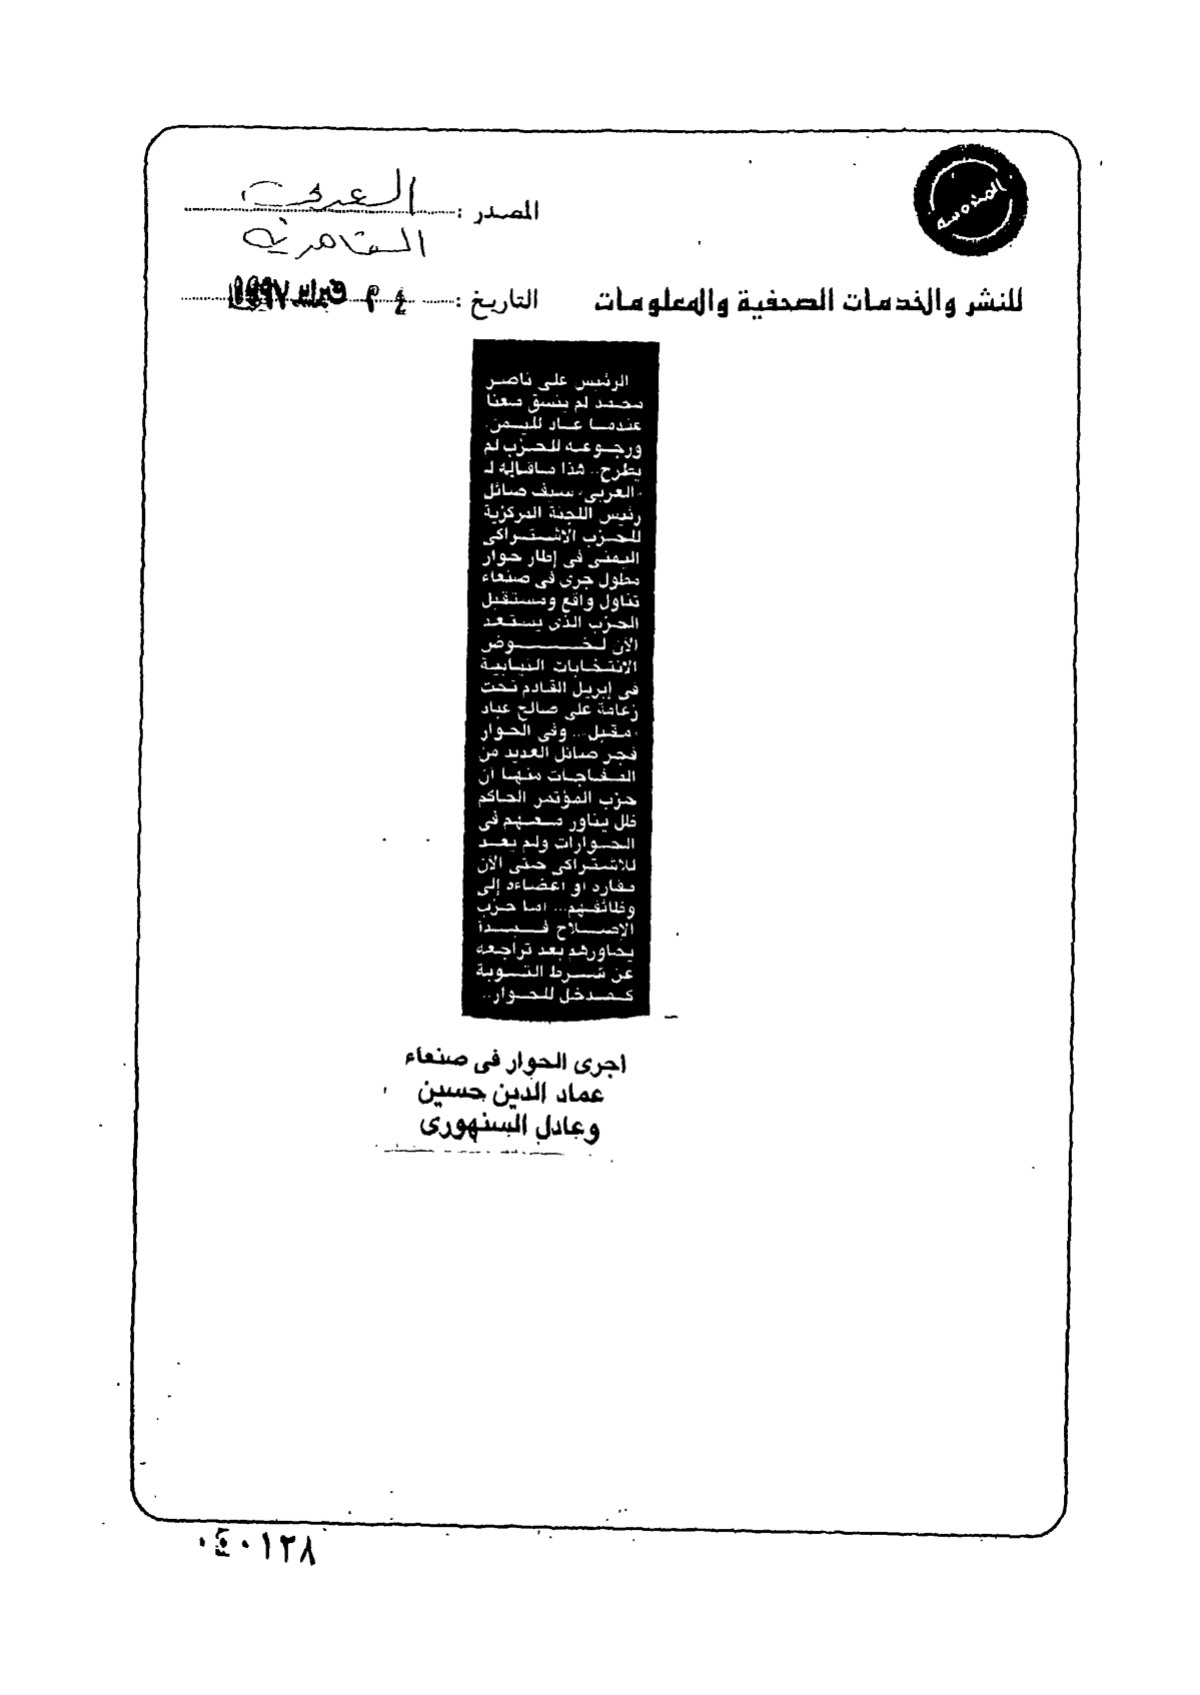 المصدر : العربي
القاهرية
للنشر والخدمات الصحفية والمعلومات
التاريخ : فبراير ١٩٩٧
الرئيس على ناصر
محمد لم ينسق معنا
عندما عاد لليمن.
ورجوعه للحزب لم
يطرح.. هذا ماقاله لـ
«العربى» سيف صائل
رئيس اللجنة المركزية
للحزب الاشتراكى
اليمنى فى إطار حوار
مطول جرى فى صنعاء
تناول واقع ومستقبل
الحزب الذى يستعد
الآن لخوض
الانتخابات النيابية
فى إبريل القادم تحت
زعامة على صالح عباد
«مقبل».. وفى الحوار
فجر صائل العديد من
المفاجات منها أن
حزب المؤتمر الحاكم
ظل يناور معهم فى
الحوارات ولم يعد
للاشتراكى حتى الآن
مقاره او اعضاءه إلى
وظائفهم... اما حزب
الإصلاح فبدأ
يحاورهم بعد تراجعه
عن شرط التوبة
كمدخل للحوار..
اجرى الحوار فى صنعاء
عماد الدين حسين
وعادل السنهورى